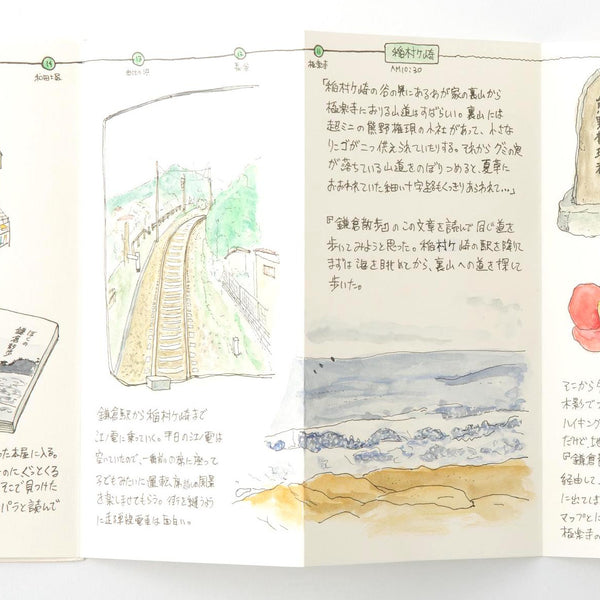 和田塚
長谷
極楽寺
稲村ヶ崎
AM10:30
「稲村ケ崎の谷の奥にあるわが家の裏山から
極楽寺におりる山道はすばらしい。裏山には
超ミニの熊野権現の小社があって、小さな
リンゴが二つ供えられていたりする。それからグミの実
が落ちている山道をのぼりつめると、夏草に
おおわれていた細い十字路もくっきりあらわれて…」
『鎌倉散歩』のこの文章を読んで同じ道を
歩いてみようと思った。稲村ケ崎の駅を降りて
まずは海を眺めてから、裏山への道を探して
歩いた。
鎌倉駅から稲村ケ崎まで
江ノ電に乗っていく。平日の江ノ電は
空いていたので、一番前の席に座って
子どもみたいに運転席越しの風景
を楽しませてもらう。街を縫うように
走る路線電車は面白い。
ぼくの
鎌倉散歩
った本屋に入る。
のに、ぐっとくる
すこで見つけた
パラと読んで
熊野権現
マニから
木影で
ハイキング
だけど地
『鎌倉
経由して、
に出てしま
マップと
極楽寺の